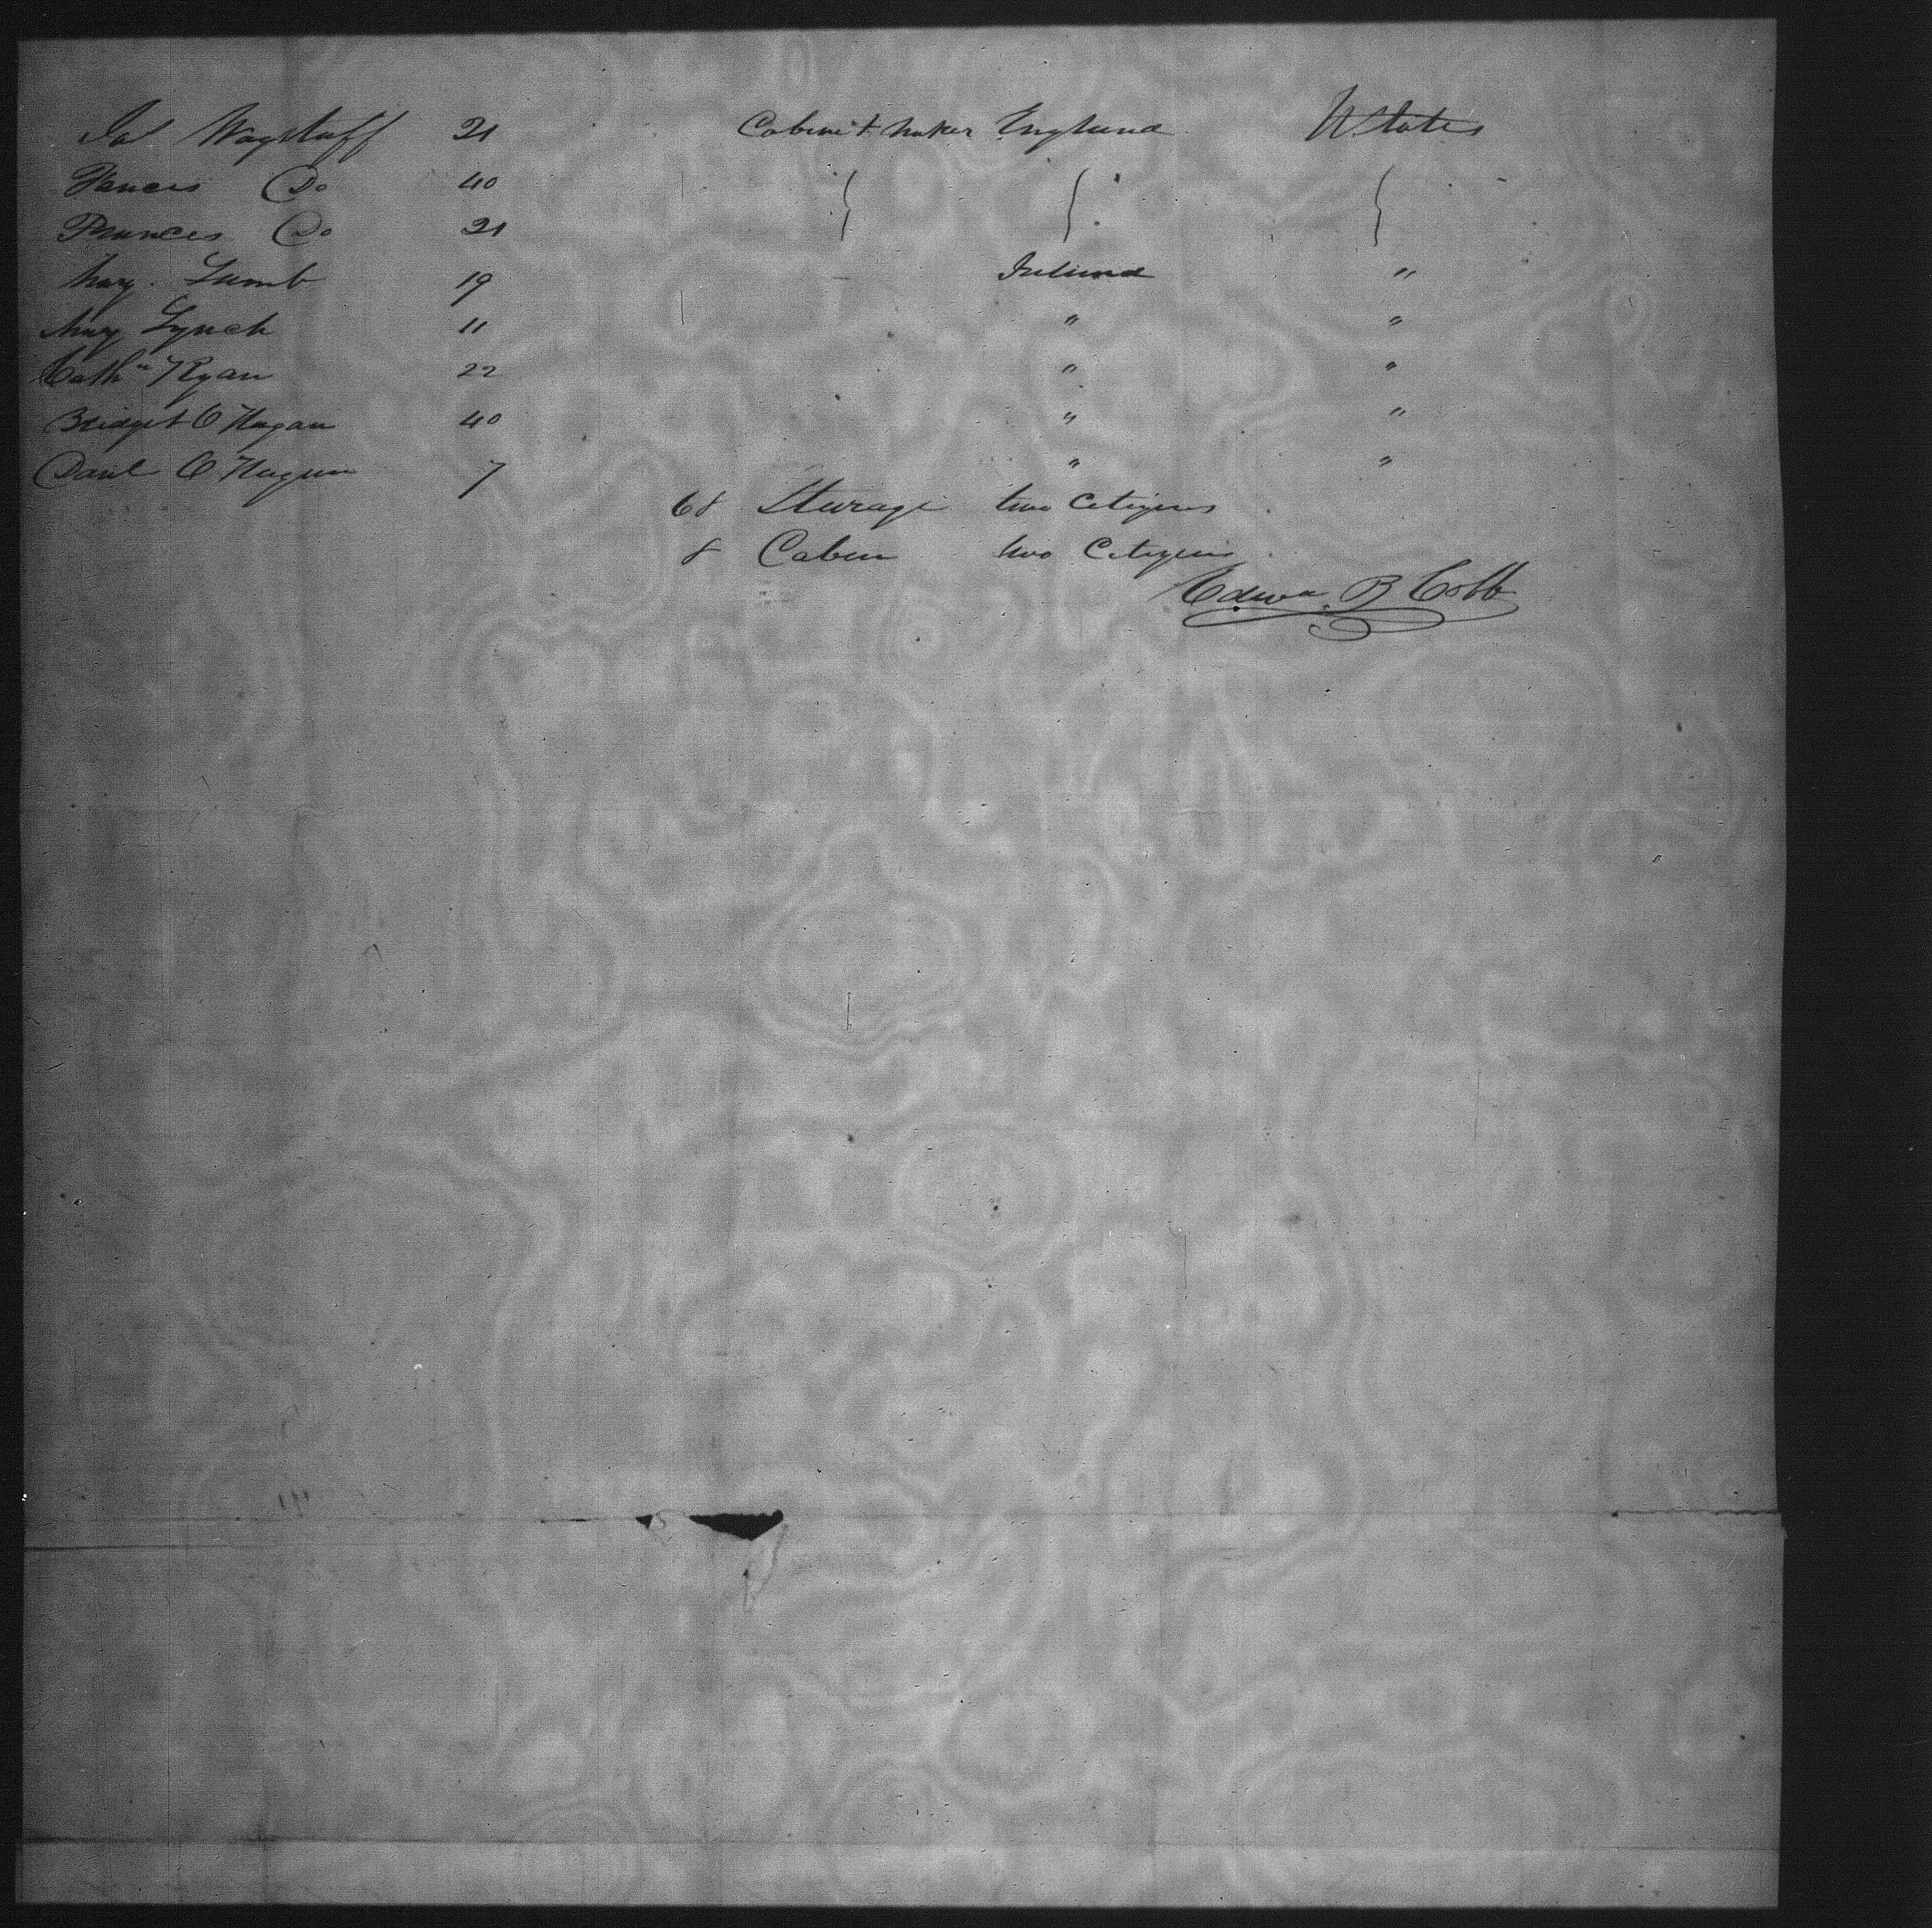 Jas Wagstaff 21 Cabinet Maker England U States
Frances Do 40 } } }
Frances Do 21
Mary Lumb 19 Ireland "
Mary Lynch 11 " "
Cathn Ryan 22 " "
Bridget O Hagan 40 " "
Danl O Hagan 7 " "
68 Sturage two Citizens
8 Caben two Citizens
Edwd B Cobb